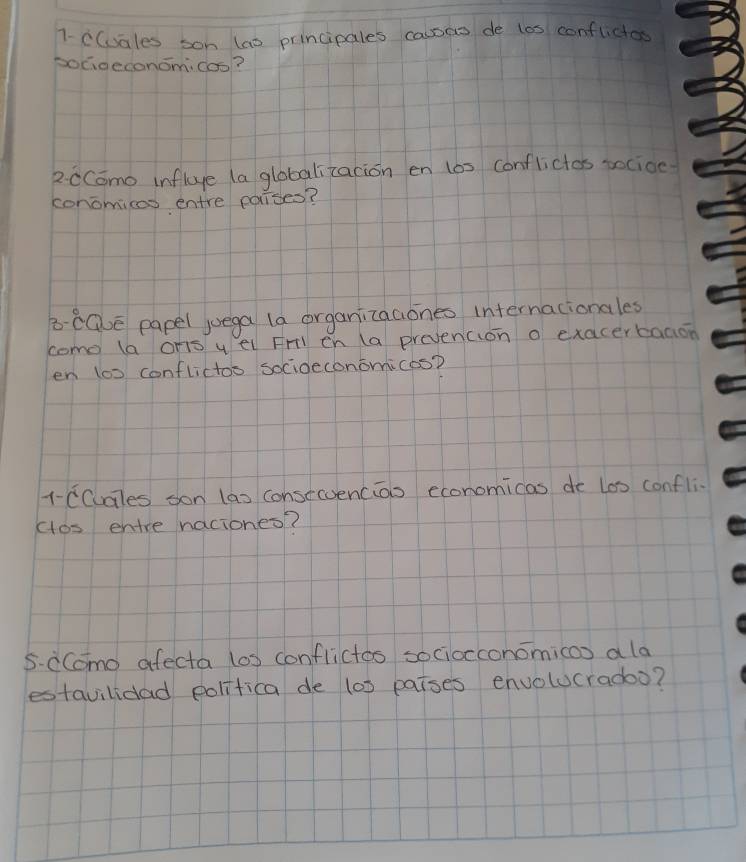 1-¿Cuáles son las principales causas de los conflictos
socioeconómicos?
2-¿Cómo influye la globalización en los conflictos socioe-
conómicos entre países?
3-¿Qué papel juega la organizaciónes internacionales
como la OMS y el FMI en la prevención o exacerbación
en los conflictos socioeconómicos?
1-¿Cuáles son las consecuencias economicas de los confli-
ctos entre naciones?
5-¿Cómo afecta los conflictos socioeconómicos a la
estavilidad política de los países envolucrados?